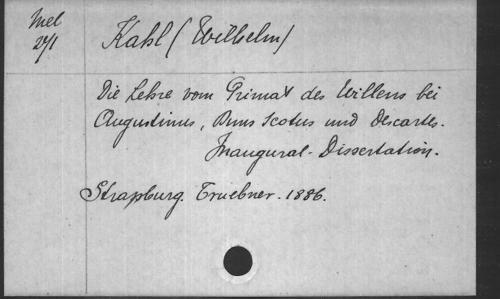 Mel
27/1
Kahl (Wilhelm)
Die Lehre vom Primat des Willens bei
Augustinus, Duns Scotus und Descartes.
Inaugural-Dissertation.
Strassburg. Truebner. 1886.